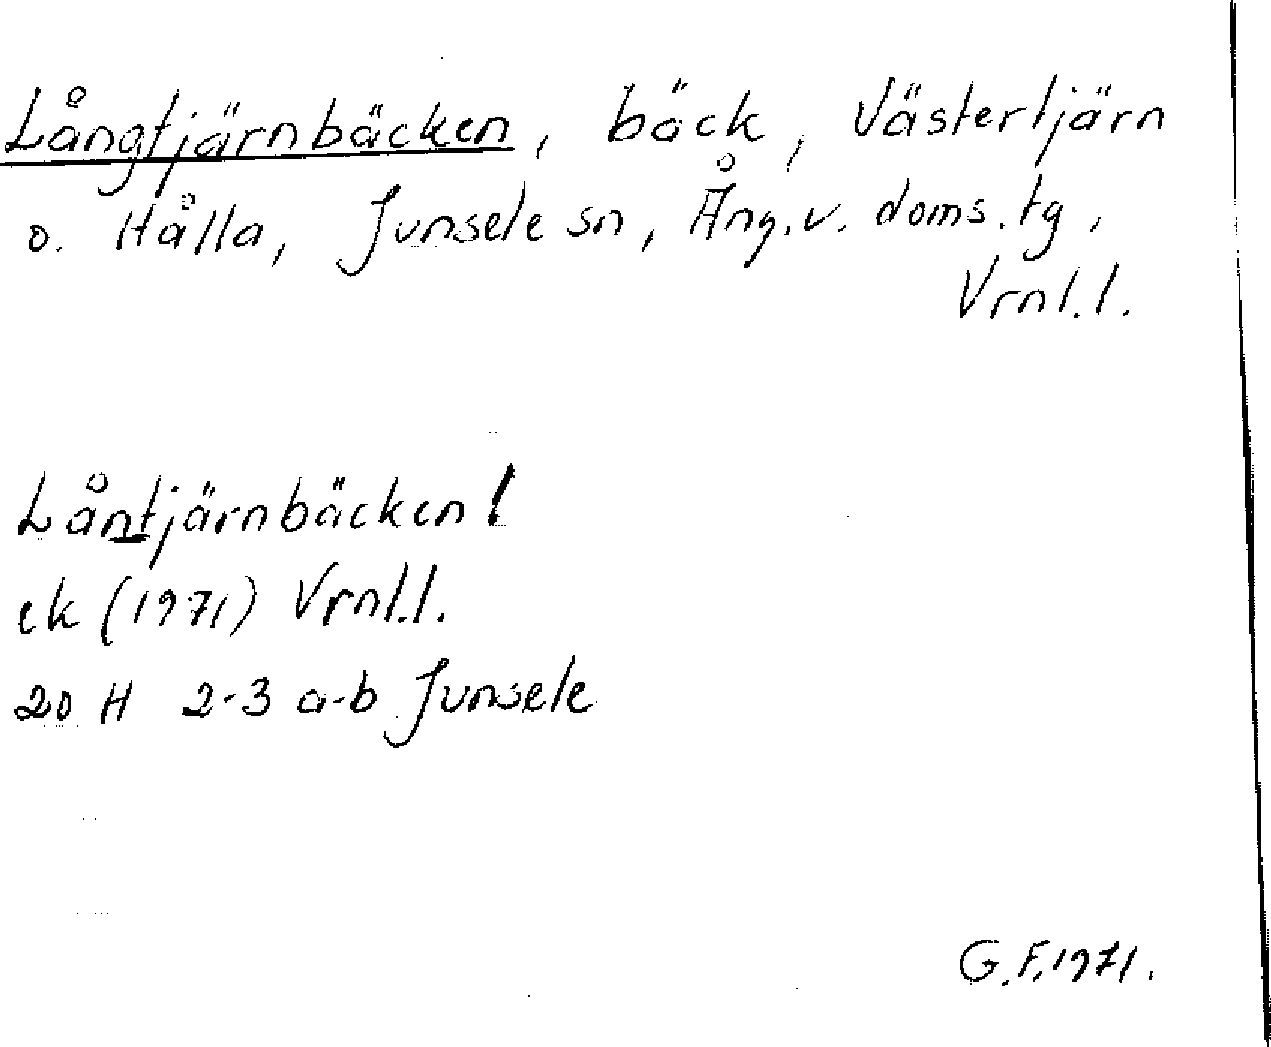 Långtjärnbäcken, bäck, Västertjärn
o. Hålla, Junsele sn, Ång. v. doms. tg,
Vrnl. l.
Låntjärnbäcken!
ek (1971) Vrnl. l.
20 H 2-3 a-b Junsele
G. F. 1971.